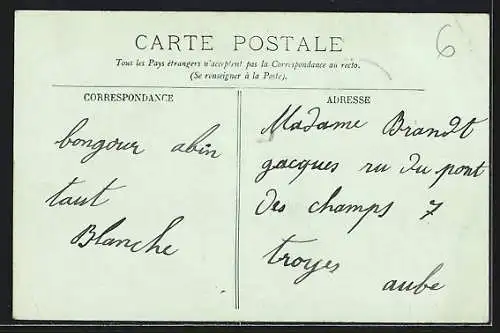 CARTE POSTALE
Tous les Pays étrangers n'acceptent pas la Correspondance au recto.
(Se renseigner à la Poste).
6
CORRESPONDANCE
bongour abin
taut
Blanche
ADRESSE
Madame Brandt
gacques ru du pont
des champs 7
troyes
aube